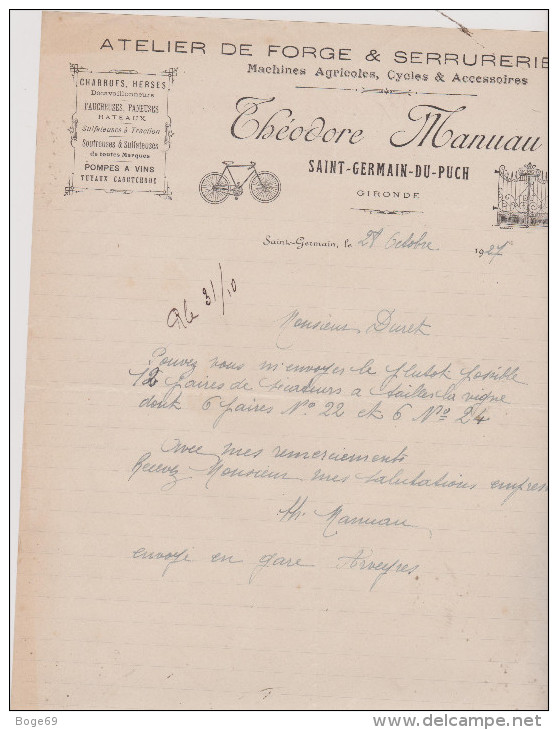 ATELIER DE FORGE & SERRURERIE
Machines Agricoles, Cycles & Accessoires
CHARRUES, HERSES
Décavaillonneurs
FAUCHEUSES, FANEUSES
RATEAUX
Sulfateuses à Traction
Soufreuses & Sulfateuses
de toutes Marques
POMPES A VINS
TUYAUX CAOUTCHOUC
Théodore Manuau
SAINT-GERMAIN-DU-PUCH
GIRONDE
Saint-Germain, le 28 Octobre 1927
le 31/10
Monsieur Duret
Pouvez vous m'envoyer le plutot possible
12 paires de sécateurs a tailler la vigne
dont 6 paires No 22 et 6 No 24
Avec mes remerciements
Recevez Monsieur mes salutations empres
Th. Manuau
envoyé en gare Arveyres
Boge69
www.delcampe.net